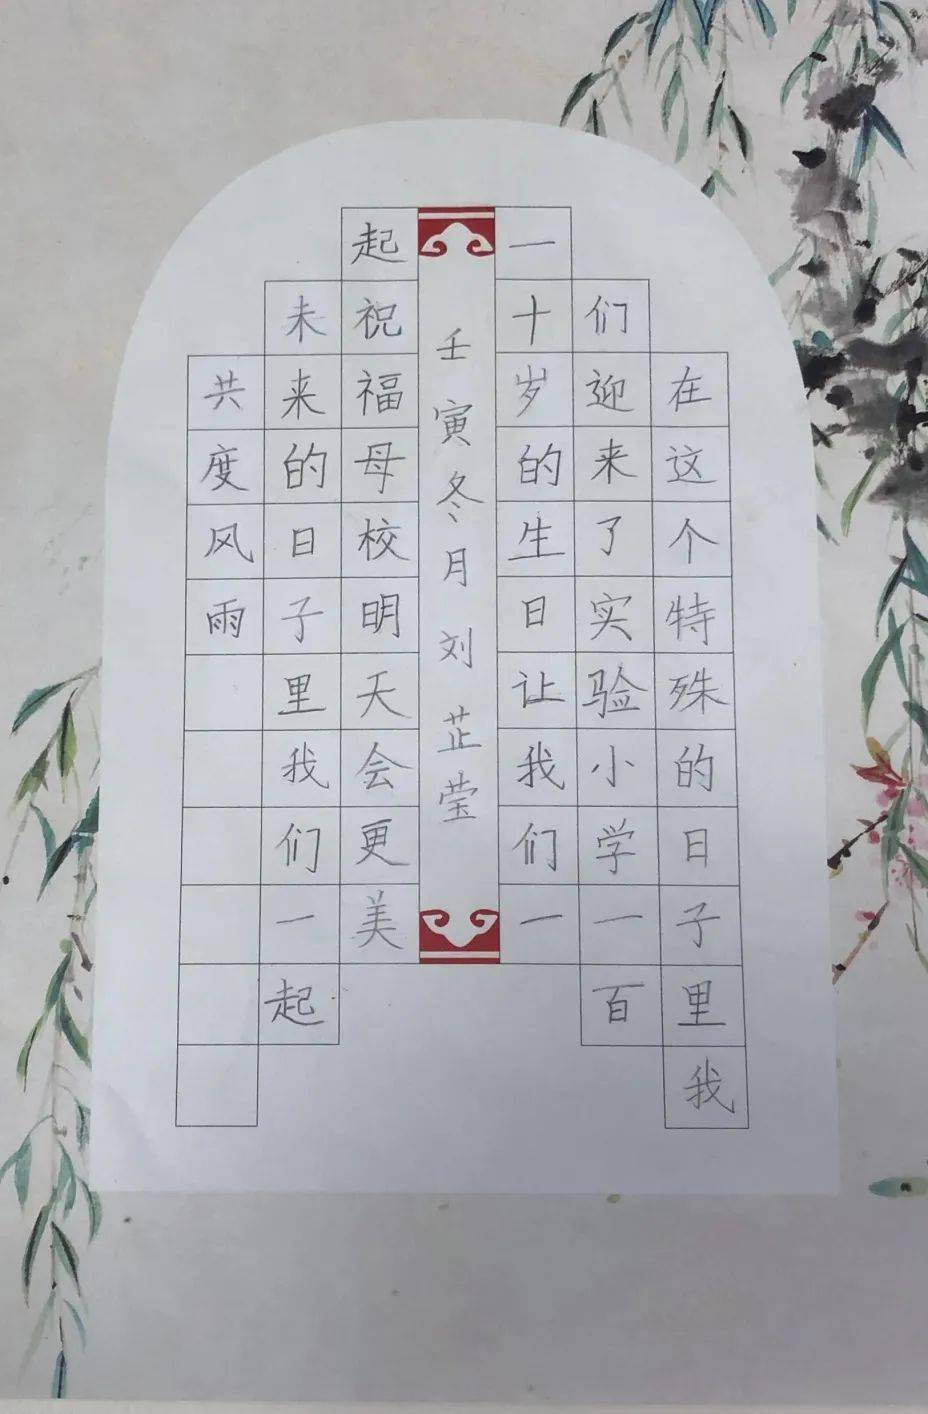 在这个特殊的日子里我
们迎来了实验小学一百
一十岁的生日让我们一
起祝福母校明天会更美
未来的日子里我们一起
共度风雨
壬寅冬月 刘芷莹